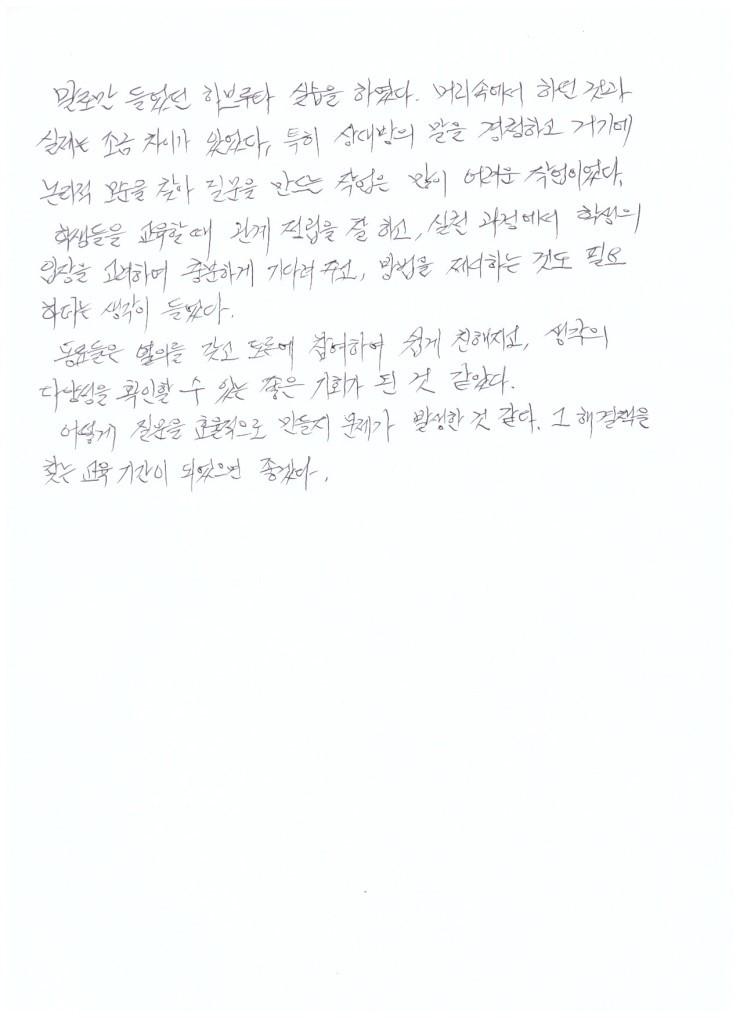 말로만 들었던 하브루타 실습을 하였다. 머리속에서 하던 것과
실제는 조금 차이가 있었다. 특히 상대방의 말을 경청하고 거기에
논리적 모순을 찾아 질문을 만드는 작업은 많이 어려운 작업이었다.
학생들을 교육할 때 관계 정립을 잘 하고, 실천 과정에서 학생의
입장을 고려하여 충분하게 기다려 주고, 방법을 제시하는 것도 필요
하다는 생각이 들었다.
동료들은 열의를 갖고 토론에 참여하여 쉽게 친해지고, 생각의
다양성을 확인할 수 있는 좋은 기회가 된 것 같았다.
어떻게 질문을 효율적으로 만들지 문제가 발생한 것 같다. 그 해결책을
찾는 교육 기간이 되었으면 좋겠다.